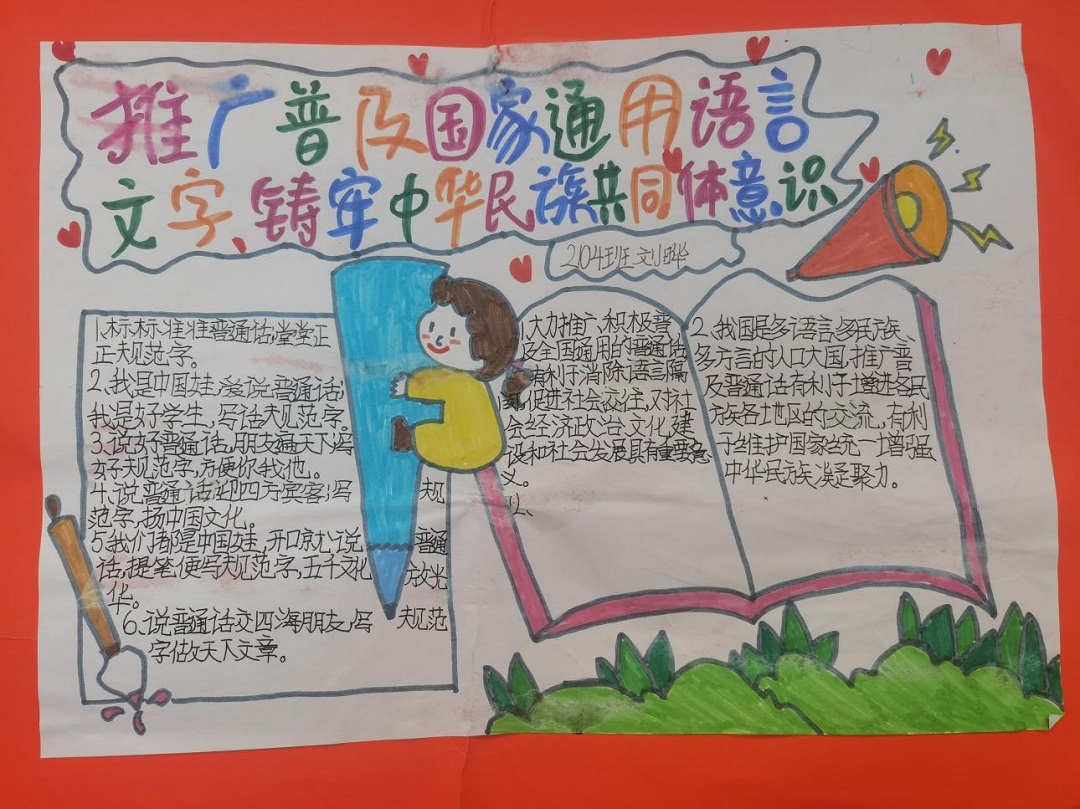 推广普及国家通用语言
文字、铸牢中华民族共同体意识
204班 刘晔
1.标标准准普通话，堂堂正
正规范字。
2.我是中国娃，爱说普通话；
我是好学生，写话规范字。
3.说好普通话，朋友遍天下；写
好规范字，方便你我他。
4.说普通话迎四方宾客！写 规
范字，扬中国文化。
5.我们都是中国娃，开口就说 普通
话，提笔便写规范字，五千文化 放光
华。
6.说普通话交四海朋友，写 规范
字做天下文章。
大力推广、积极普
及全国通用的普通话
有利于消除语言隔
促进社会交往，对社
会经济、政治、文化，建
设和社会发展具有重要意
义。
2.我国是多语言、多民族、
多方言的人口大国，推广普
及普通话有利于增进各民
族各地区的交流，有利
于维护国家统一增强
中华民族凝聚力。